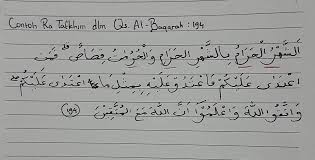 Contoh Ra Tafkhim dlm Qs. Al-Baqarah : 194
الشَّهْرُ الْحَرَامُ بِالشَّهْرِ الْحَرَامِ وَالْحُرُمٰتُ قِصَاصٌ ۗ فَمَنِ
اعْتَدٰى عَلَيْكُمْ فَاعْتَدُوْا عَلَيْهِ بِمِثْلِ مَا اعْتَدٰى عَلَيْكُمْ ۖ
وَاتَّقُوا اللهَ وَاعْلَمُوْٓا اَنَّ اللهَ مَعَ الْمُتَّقِيْنَ (194)